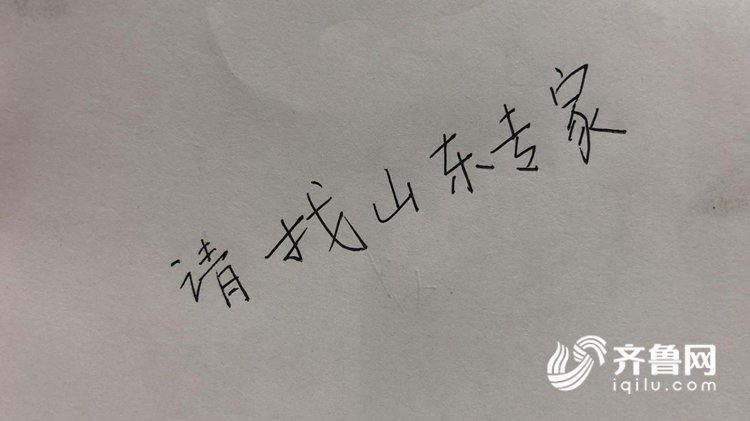 请找山东专家
齐鲁网
iqilu.com